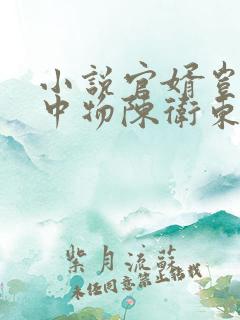 小説官婿豈
中物陳衛東
紫月流蘇
未經同意禁止轉載